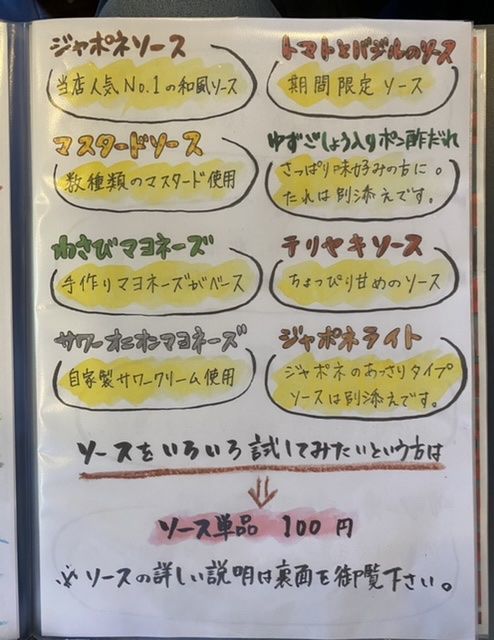 ジャポネソース
当店人気No.1の和風ソース
トマトとバジルのソース
期間限定ソース
マスタードソース
数種類のマスタード使用
ゆずごしょう入りポン酢だれ
さっぱり味好みの方に。
たれは別添えです。
わさびマヨネーズ
手作りマヨネーズがベース
テリヤキソース
ちょっぴり甘めのソース
サワーオニオンマヨネーズ
自家製サワークリーム使用
ジャポネライト
ジャポネのあっさりタイプ
ソースは別添えです。
ソースをいろいろ試してみたいという方は
↓
ソース単品 100円
※ソースの詳しい説明は裏面を御覧下さい。